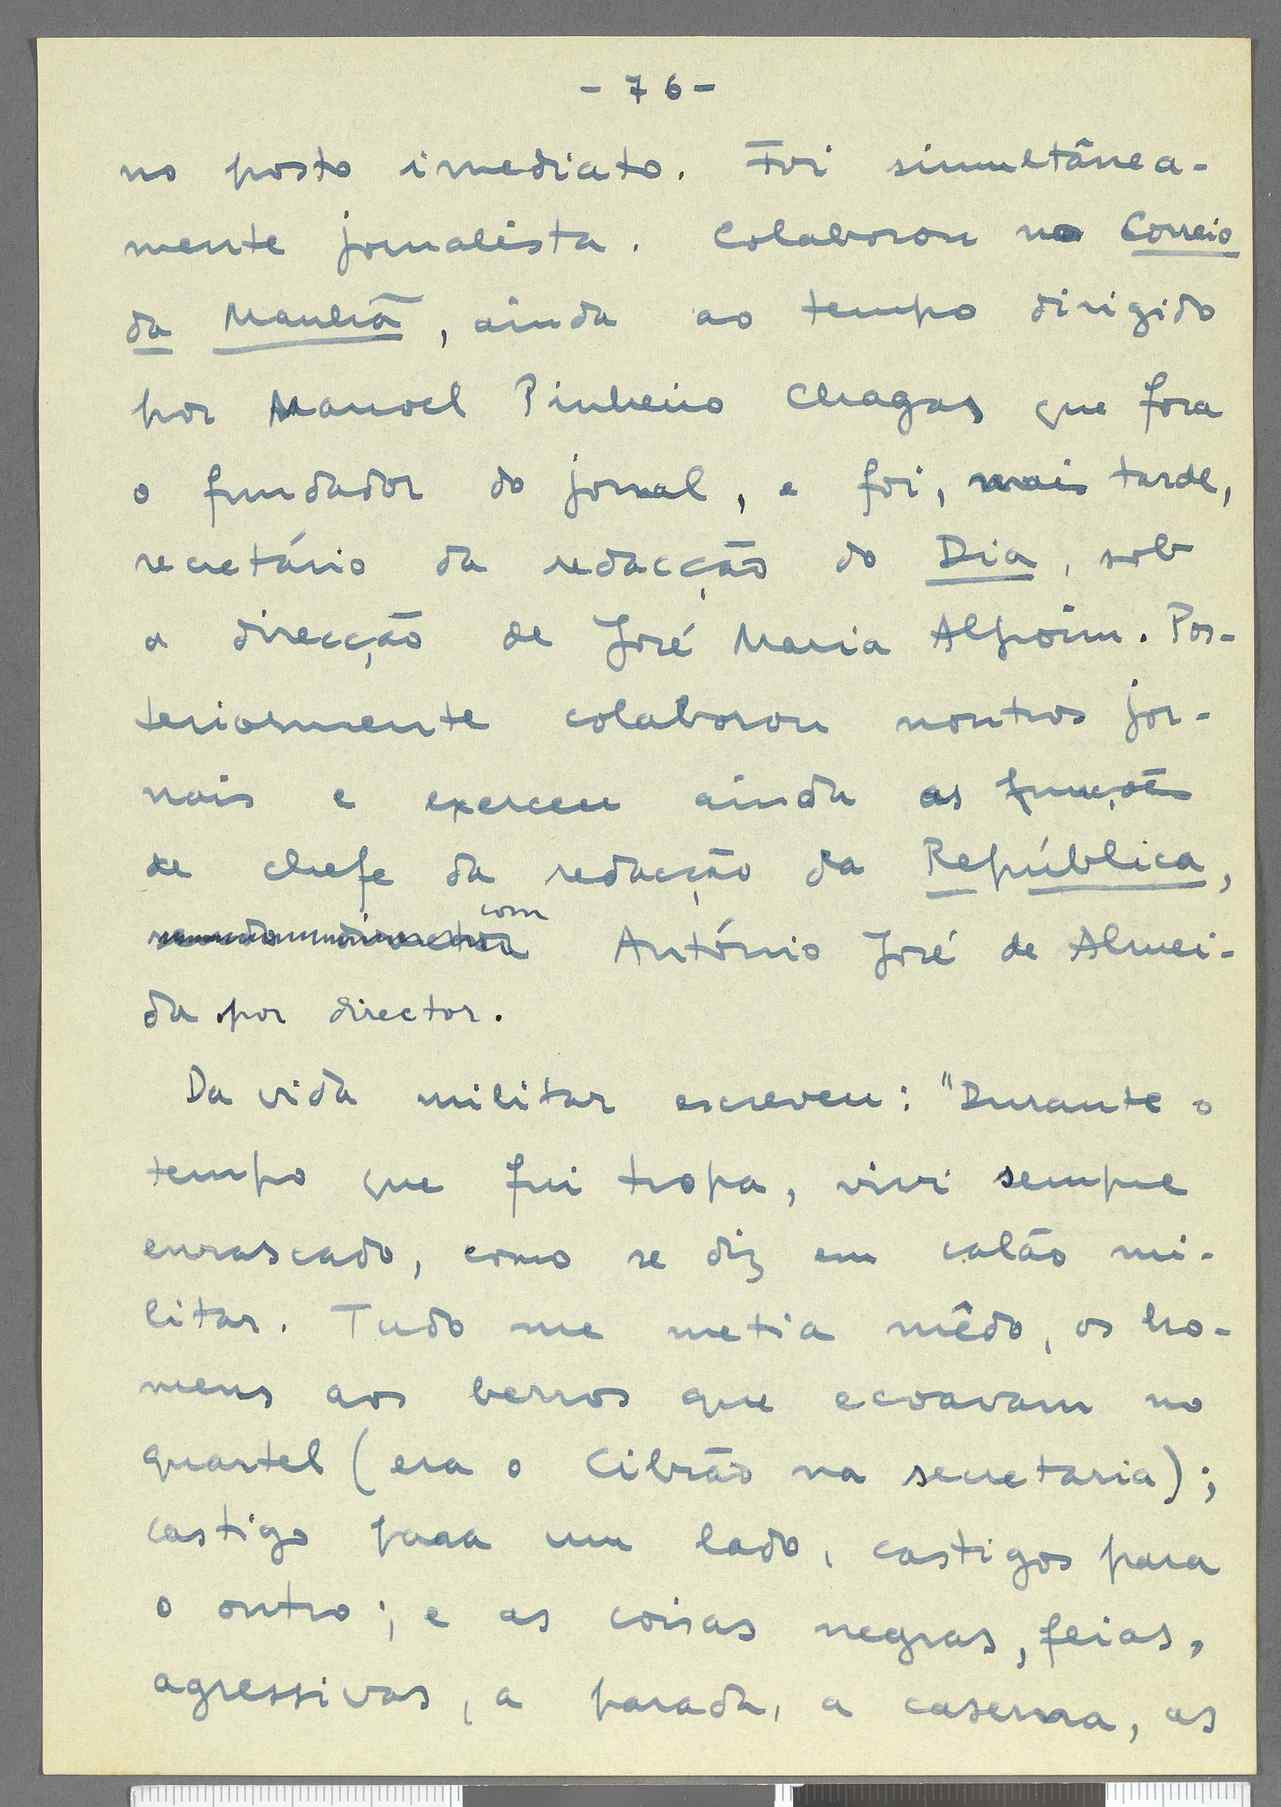 - 76 -
no posto imediato. Foi simultânea-
mente jornalista. Colaborou no Correio
da Manhã, ainda ao tempo dirigido
por Manoel Pinheiro Chagas que fora
o fundador do jornal, e foi, mais tarde,
secretário da redacção do Dia, sob
a direcção de José Maria Alpoim. Pos-
teriormente colaborou noutros jor-
nais e exerceu ainda as funções
de chefe da redacção da República,
com António José de Almei-
da por director.
Da vida militar escreveu: "Durante o
tempo que fui tropa, vivi sempre
enrascado, como se diz em calão mi-
litar. Tudo me metia mêdo, os ho-
mens aos berros que ecoavam no
quartel (era o Cibrão na secretaria);
castigo para um lado, castigos para
o outro; e as coisas negras, feias,
agressivas, a parada, a caserna, as